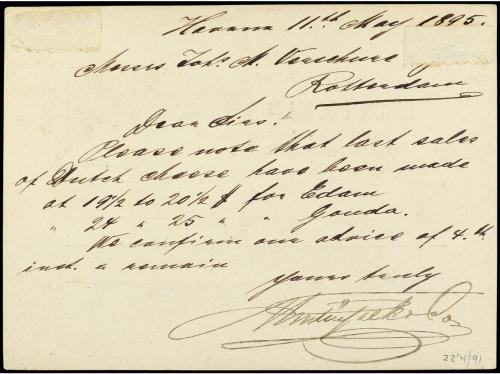 Havana 11.th May 1895.
Messrs Johs. M. Verschure
Rotterdam
Dear Sirs!
Please note that last sales
of Dutch cheese have been made
at 19 1/2 to 20 1/2 $ for Edam
" 24 " 25 " " Gouda.
We confirm our advice of 4.th
inst. & remain
Yours truly
& Co
22'4/91